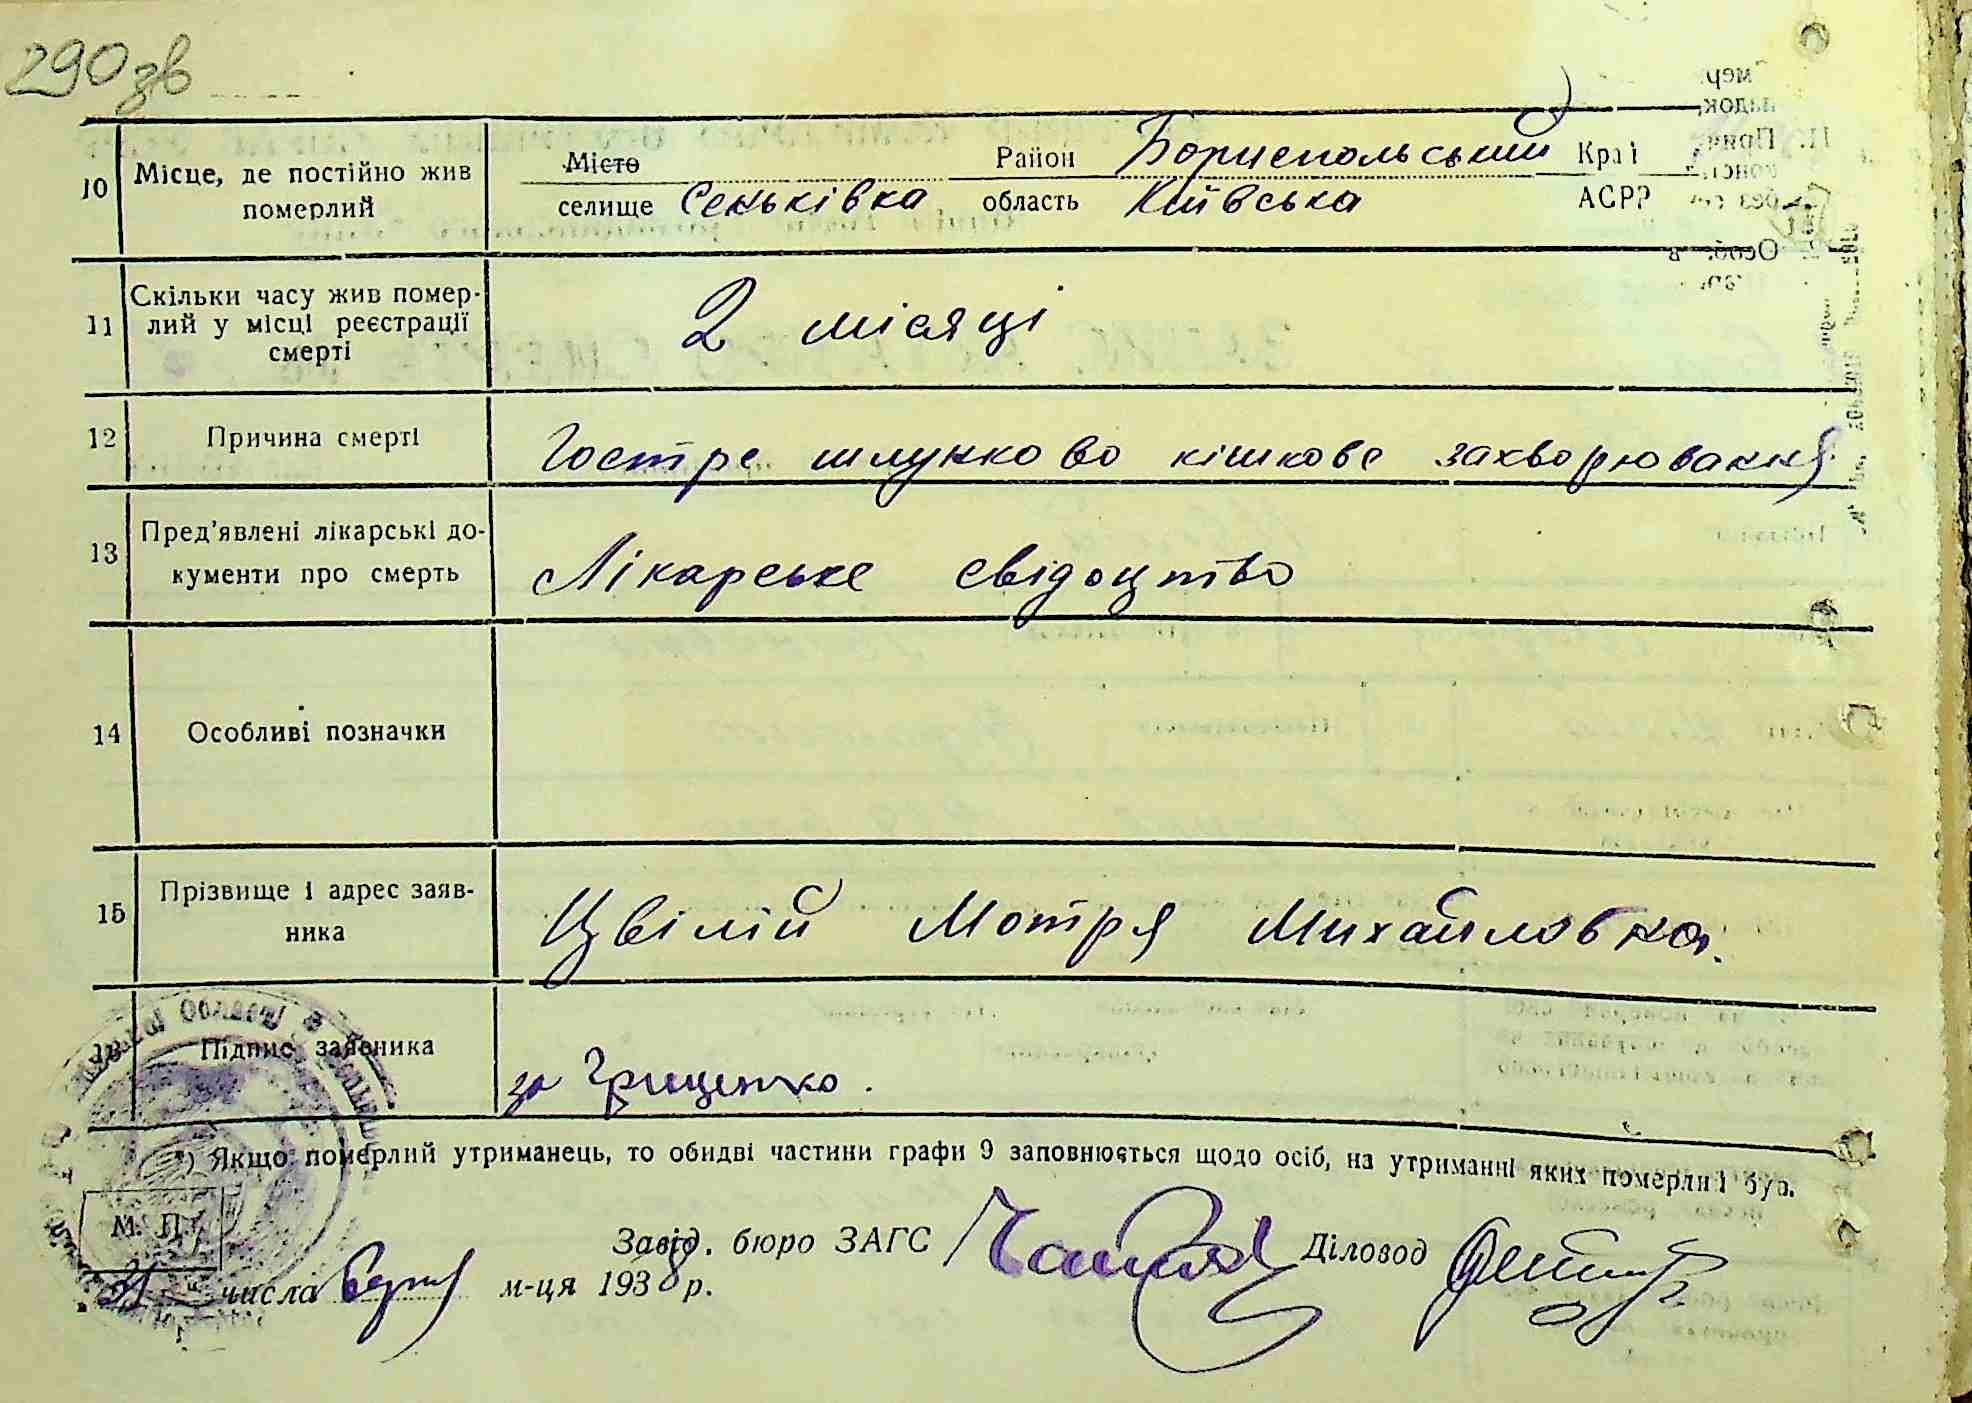 290зв
10 Місце, де постійно жив Місто Район Бориспольський Край
померлий селище Сеньківка область Київська АСРР
11 Скільки часу жив помер-
лий у місці реєстрації 2 місяці
смерті
12 Причина смерті Гостре шлунково кішкове захворювання
13 Пред'явлені лікарські до-
кументи про смерть Лікарське свідоцтво
14 Особливі позначки
15 Прізвище і адрес заяв- Цвілій Мотря Михайловна.
ника
Підпис заявника за Гриценко.
) Якщо померлий утриманець, то обидві частини графи 9 заповнюється щодо осіб, на утриманні яких померлий був.
М. П.
Завід. бюро ЗАГС Діловод
31 числа м-ця 1938 р.